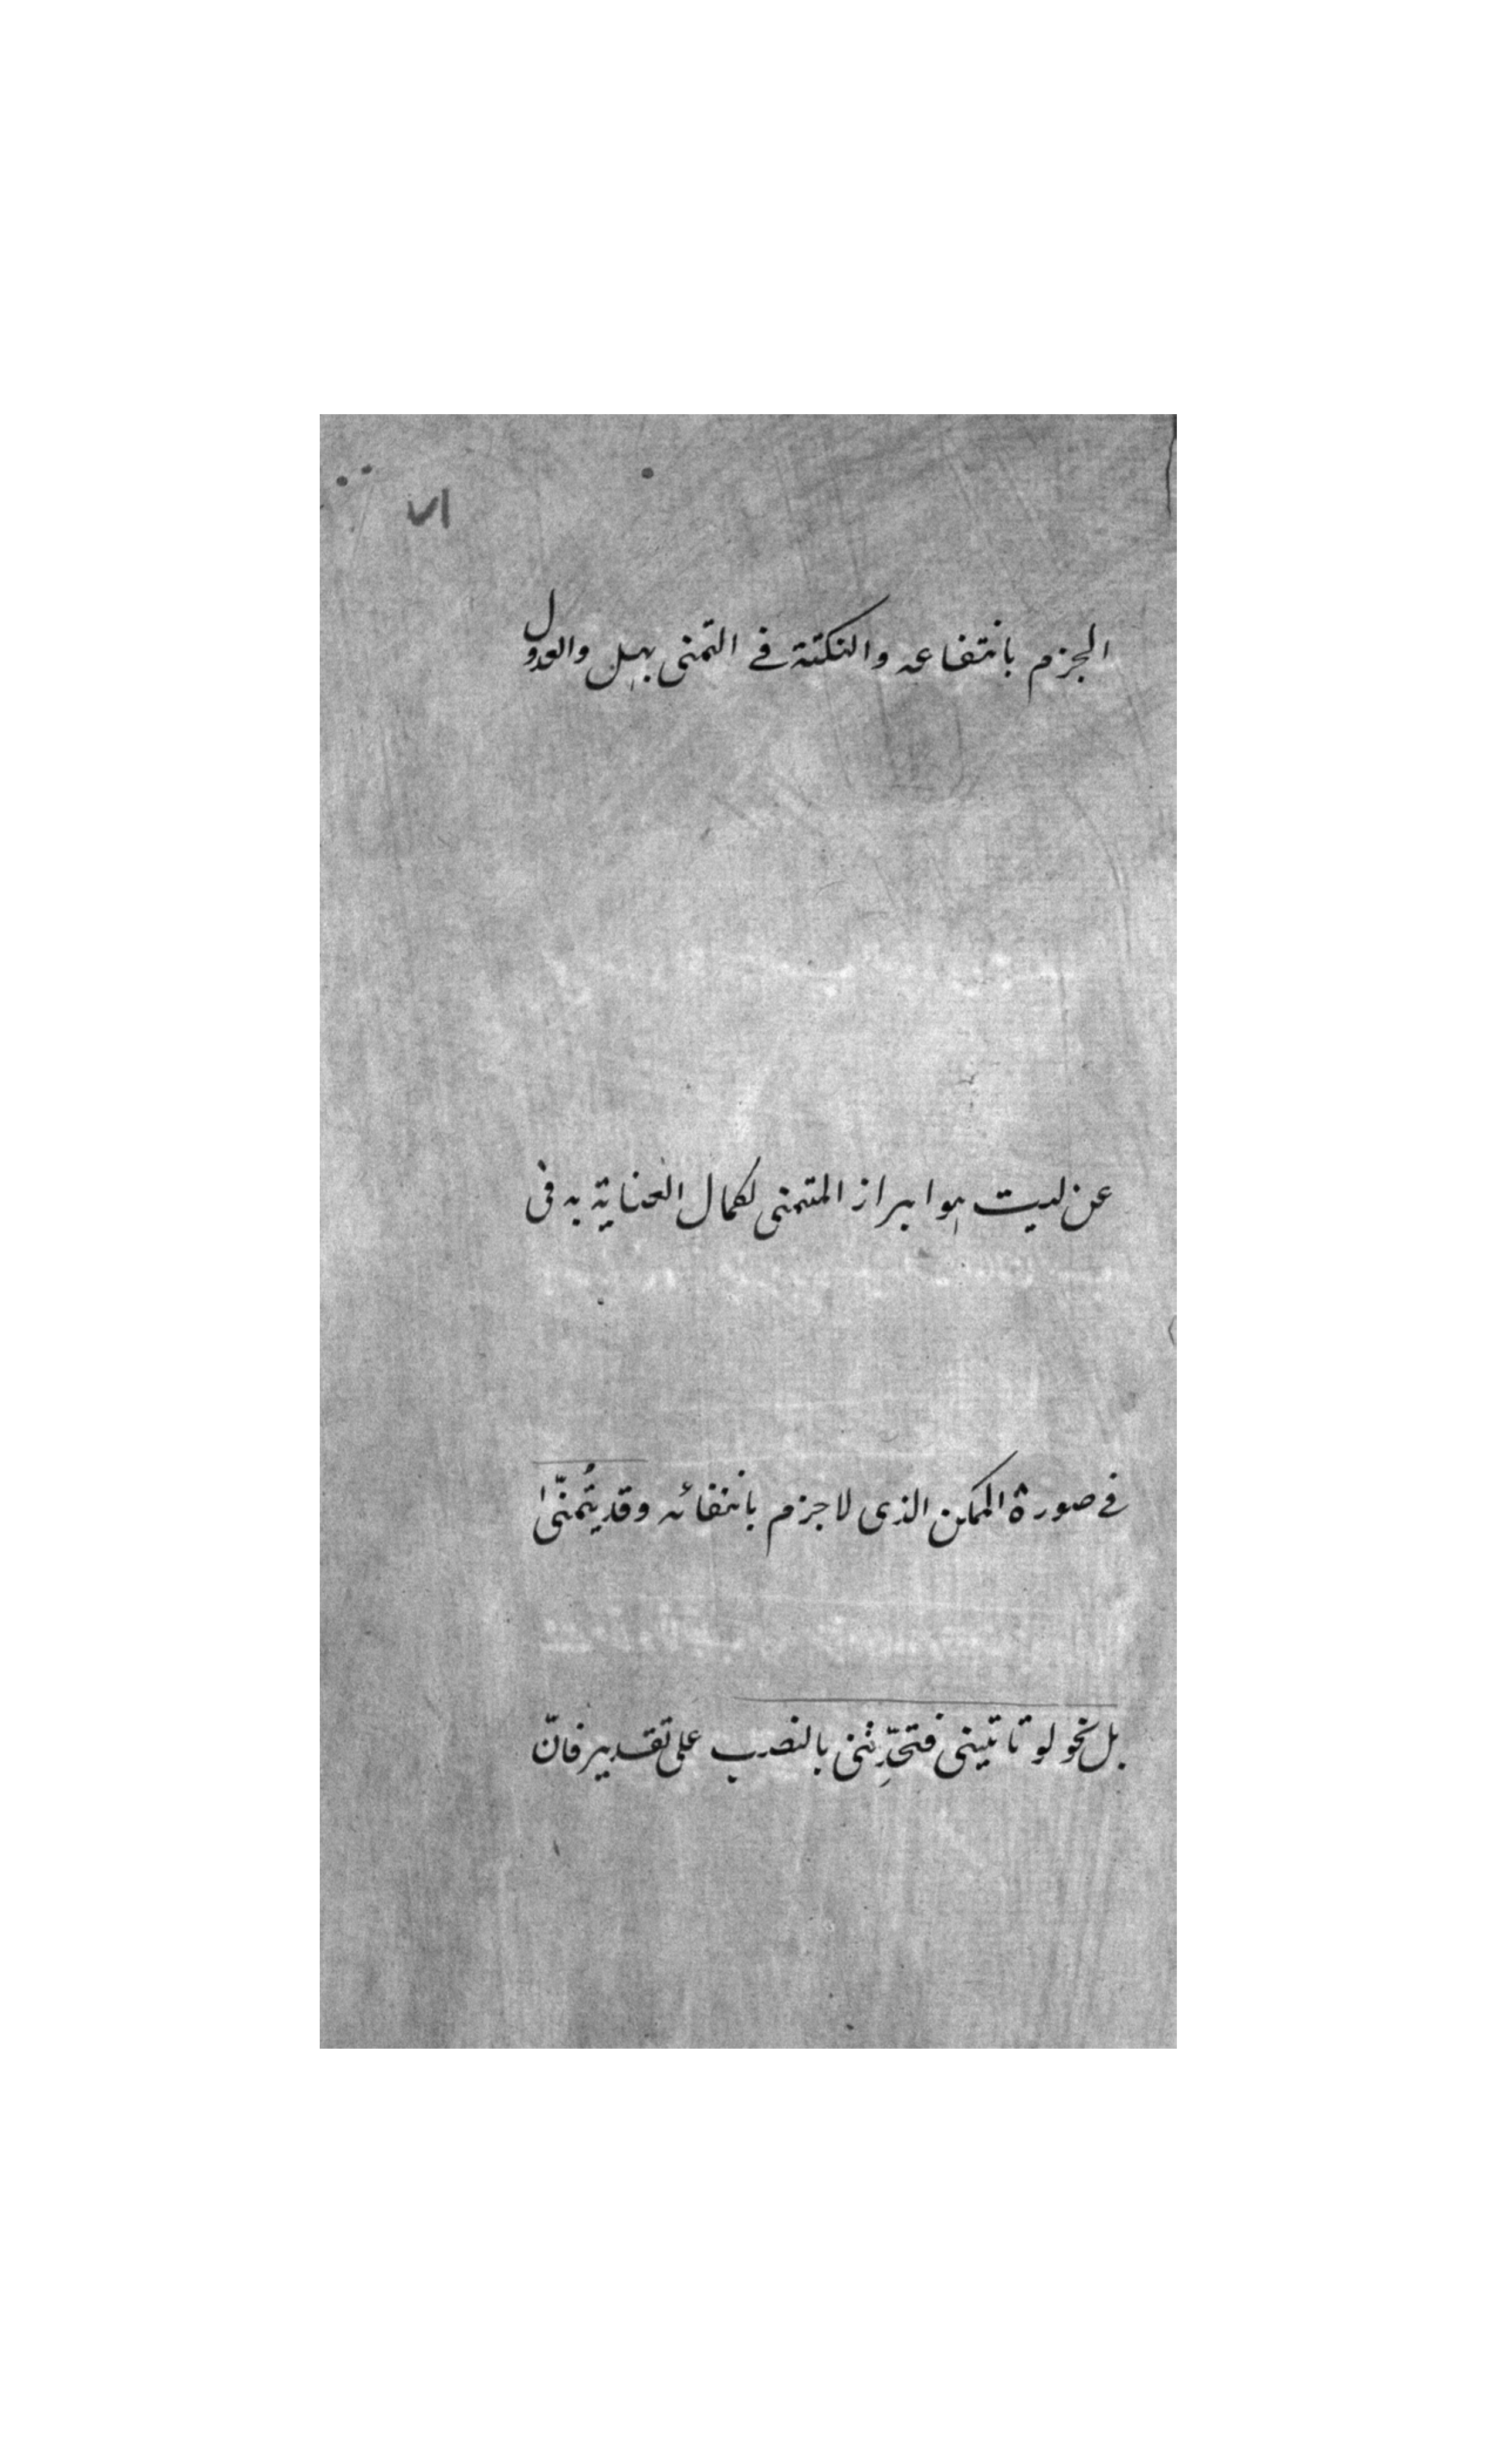 ٧١
الجزم بانتفاعه والنكتة في التمنى بهل والعدول
عن ليت هو ابراز المتمنى لكمال العناية به فى
في صورة الممكن الذى لا جزم بانتفائه وقد يُتمنّى
بل نحو لو تاتينى فتحدِّثنى بالنصب على تقدير فانّ